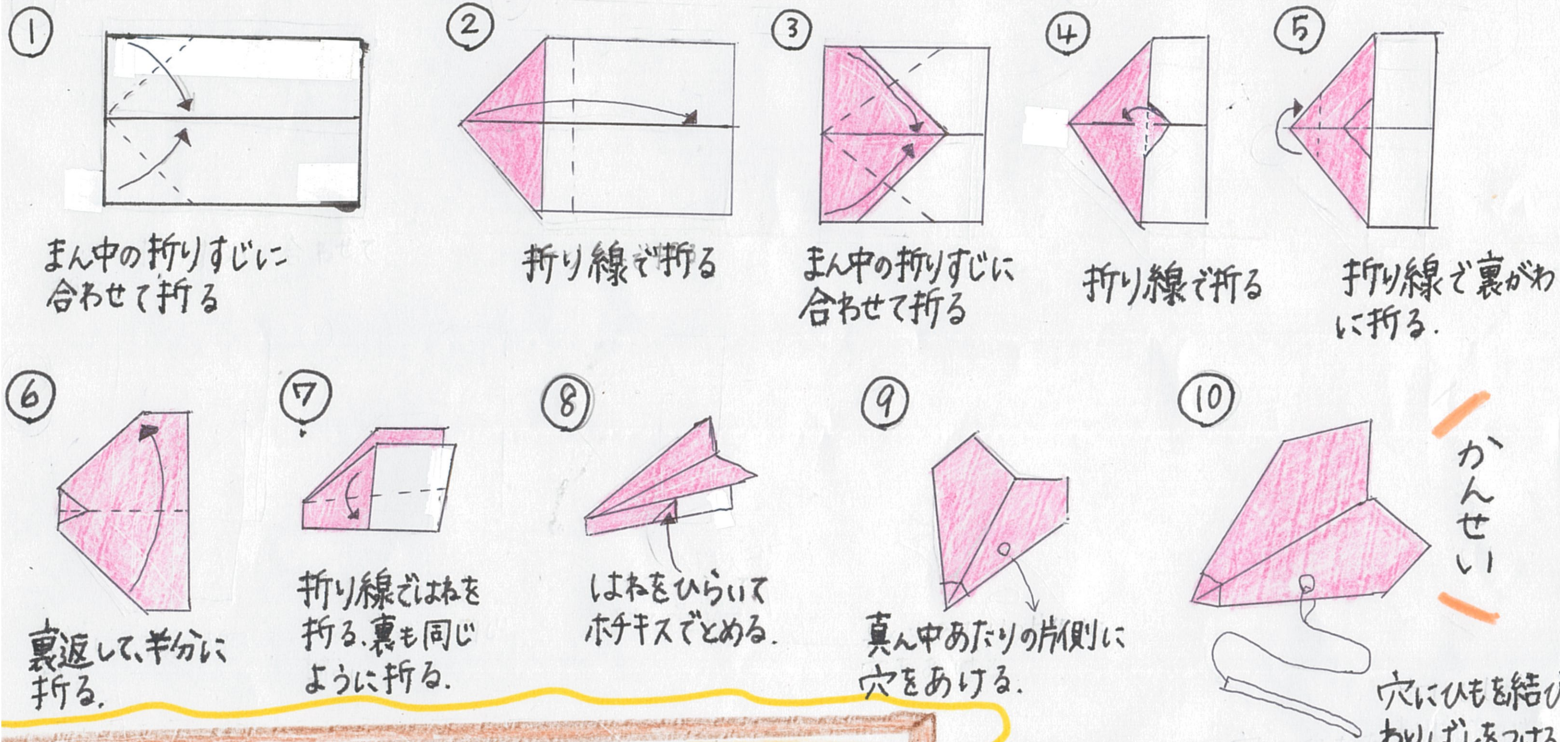 ①
まん中の折りすじに
合わせて折る
②
折り線で折る
③
まん中の折りすじに
合わせて折る
④
折り線で折る
⑤
折り線で裏がわ
に折る.
⑥
裏返して、半分に
折る.
⑦
折り線ではねを
折る.裏も同じ
ように折る.
⑧
はねをひらいて
ホチキスでとめる.
⑨
真ん中あたりの片側に
穴をあける.
⑩
かんせい
穴にひもを結び
わりばしをつける